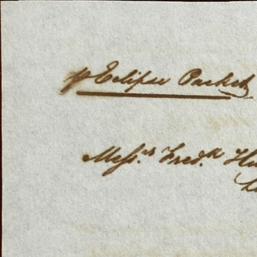 p Eclipse Packet
Messrs. Fredk. Hu